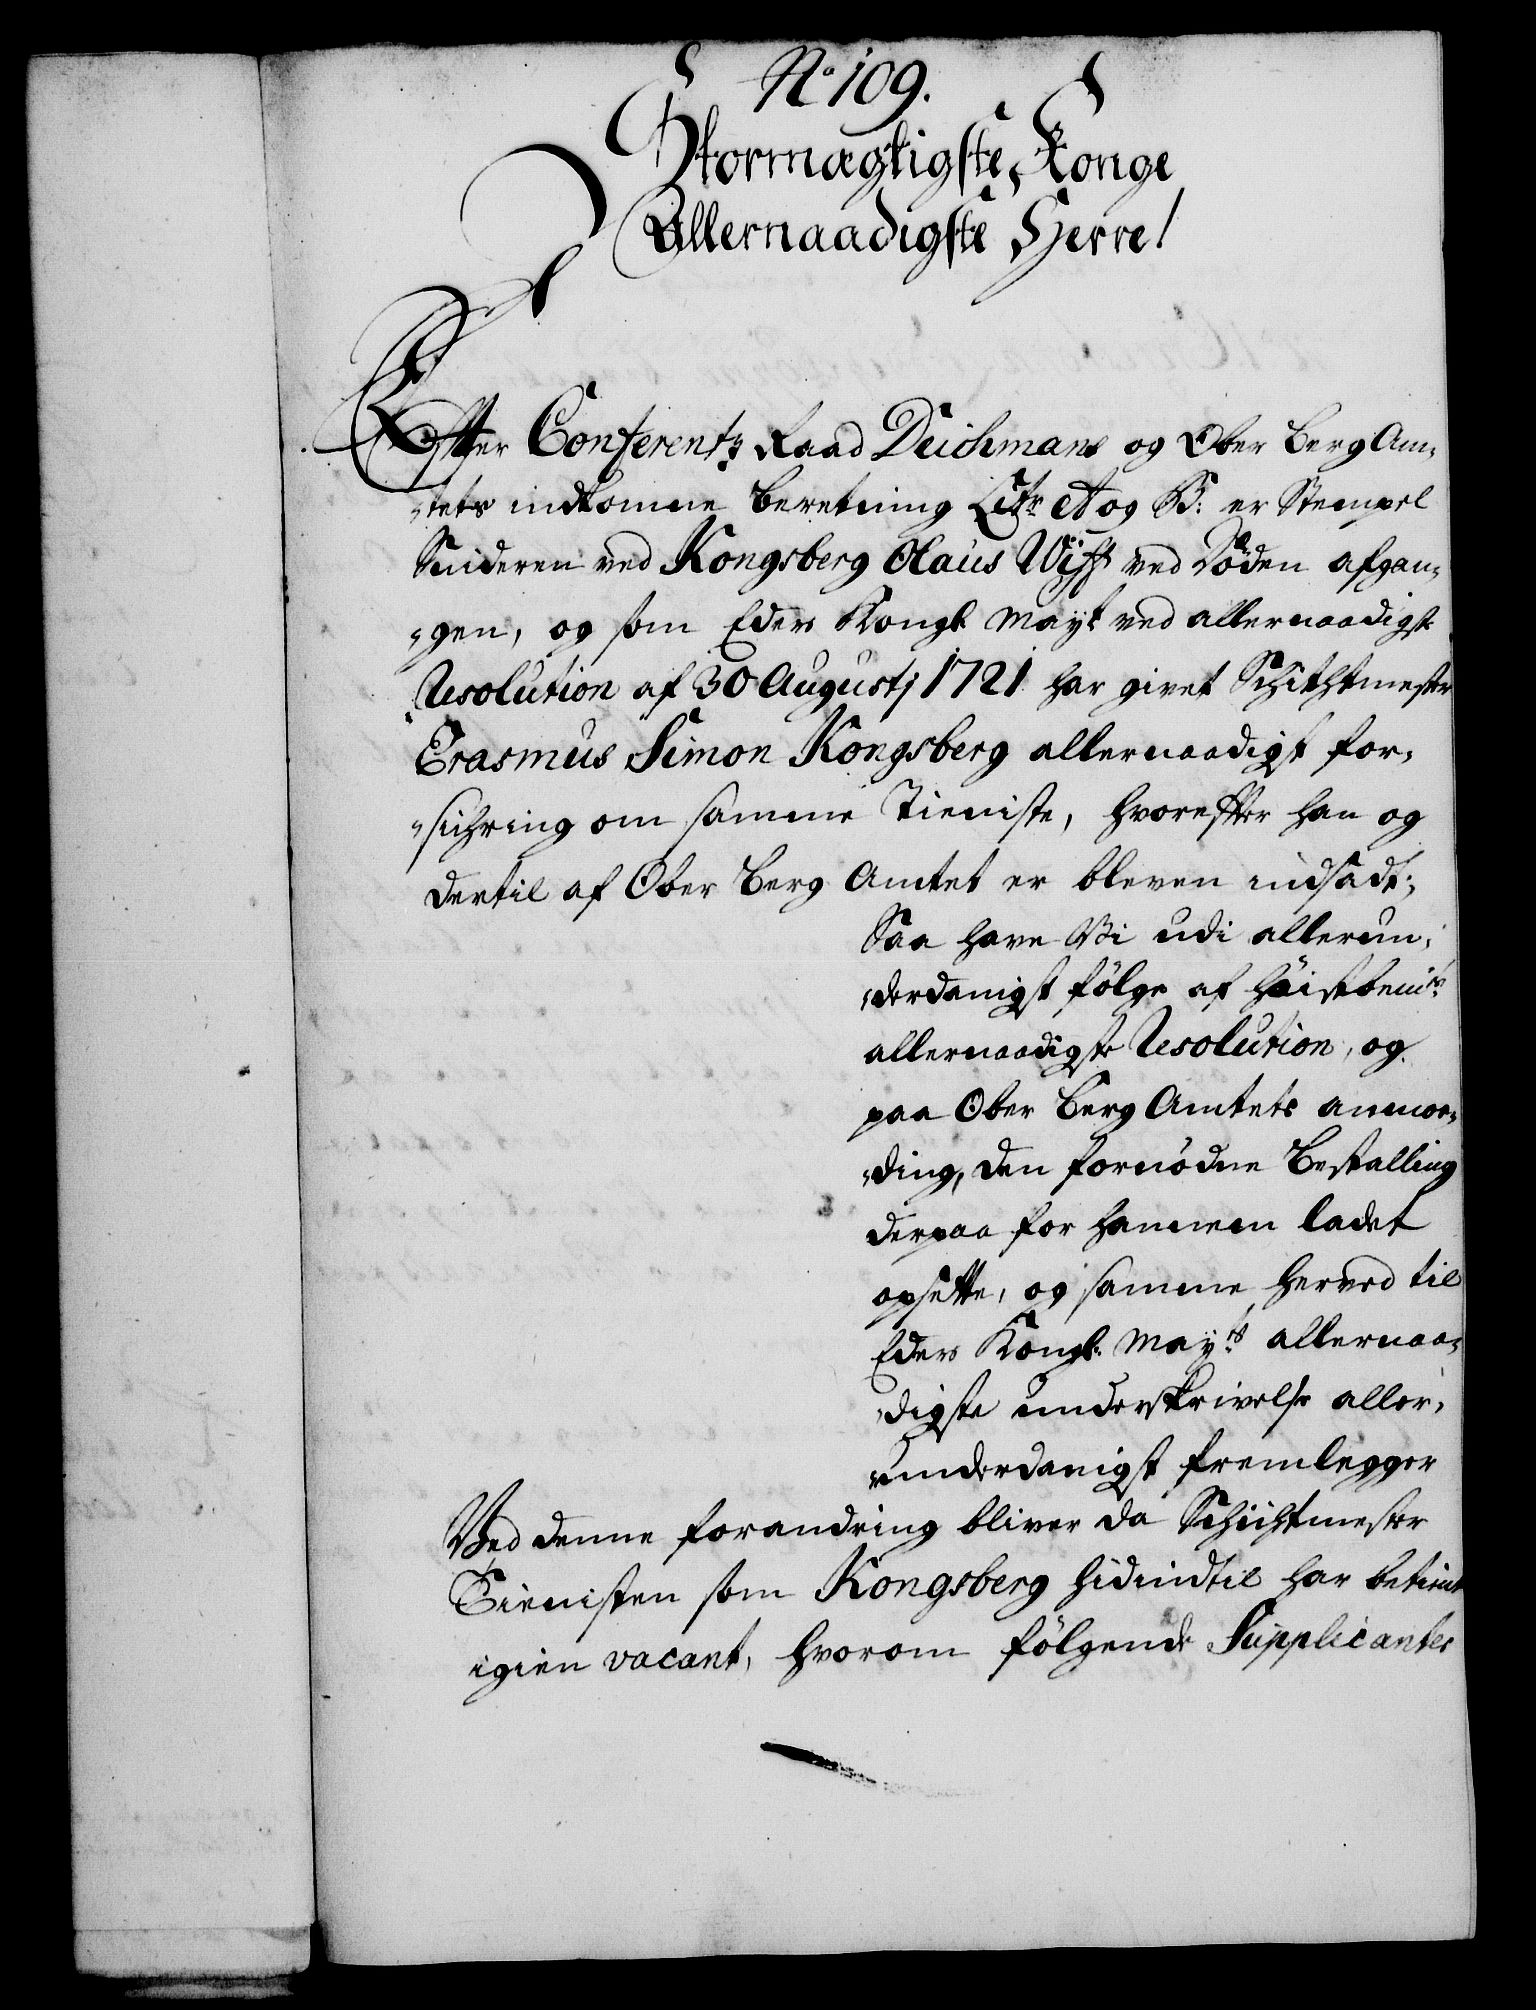 No 109.
Stormægtigste Konge
Allernaadigste Herre!
Effter Conferentz Raad Deichmans og Ober Berg Am-
-tets indkomne beretning Litr A og B: er Stempel
Snideren ved Kongsberg Olaus Wiff ved Döden afgan-
-gen, og som Eders Kongl. Mayt ved allernaadigste
Resolution af 30 Augustj 1721 har givet Schichtmester
Erasmus Simon Kongsberg allernaadigst for-
-sichring om samme Tieniste, hvoreffter han og
dertil af Ober Berg Amtet er bleven indsadt;
Saa have Vi udi allerun-
-derdanigst fölge af höistbemte
allernaadigste Resolution, og
paa Ober Berg Amtets anmo-
-ding, den fornödne Bestalling
derpaa for hannem ladet
opsette, og samme herved til
Eders Kongl. Mayts allernaa-
-digste underskrivelse aller-
-underdanigst fremlegger
Ved denne forandring bliver da Schichtmester
Tienisten som Kongsberg hidindtil har betient
igien vacant, hvorom fölgende Supplicanter